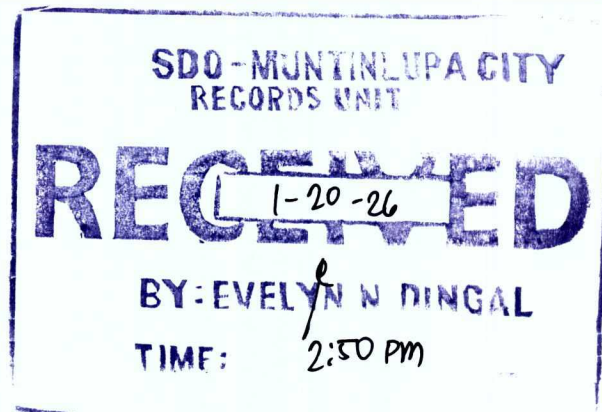 SDO-MUNTINLUPA CITY
RECORDS UNIT
RECEIVED
1-20-26
BY: EVELYN N DINGAL
TIME: 2:50 PM